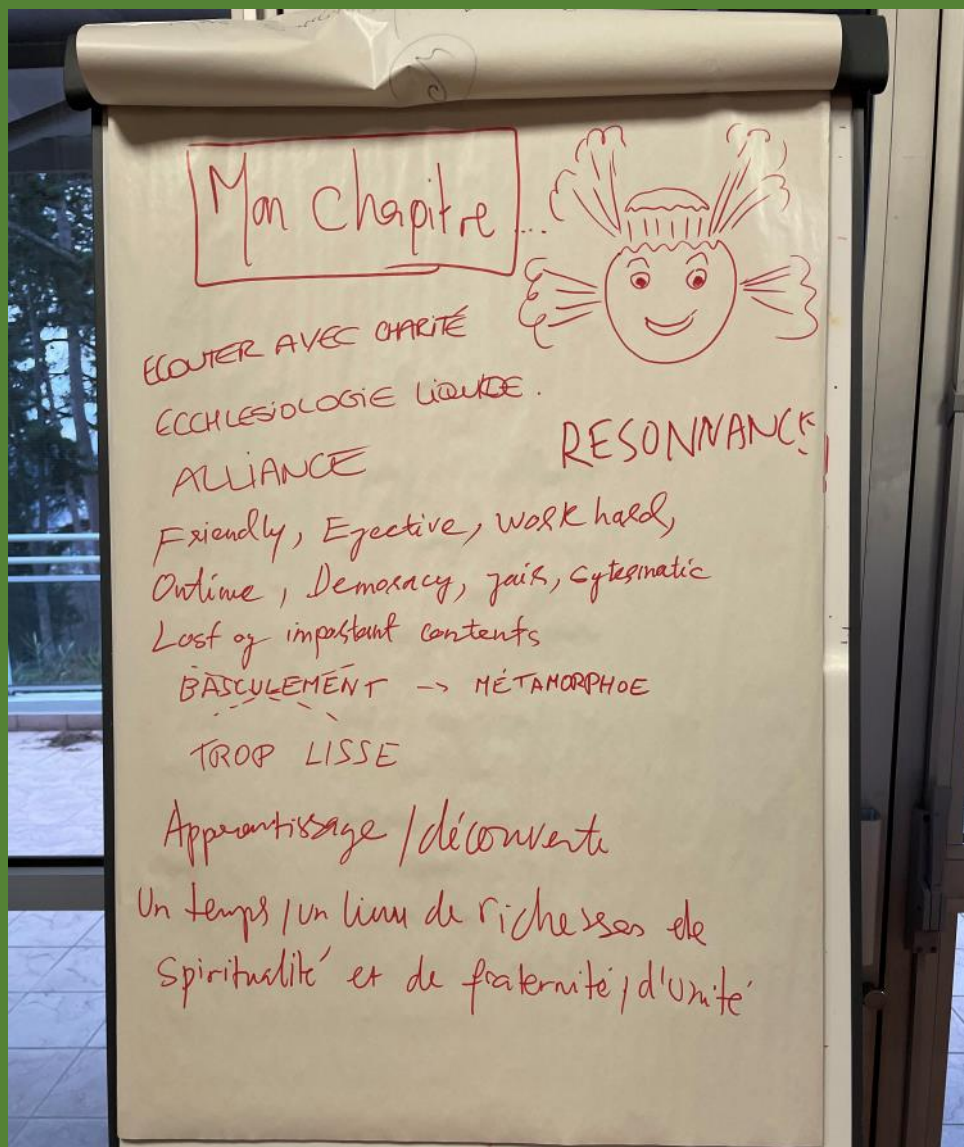 Mon Chapitre ...
ECOUTER AVEC CHARITÉ
ECCHLESIOLOGIE LIQUIDE.
RESONNANCE
ALLIANCE
Friendly, Efective, work hard,
Ontime, Demoracy, fair, sytesmatic
Lost of important contents
BASCULEMENT -> MÉTAMORPHOE
TROP LISSE
Apprentissage / découverte
Un temps / un lieu de richesses de
Spiritualité et de fraternité / d'unité